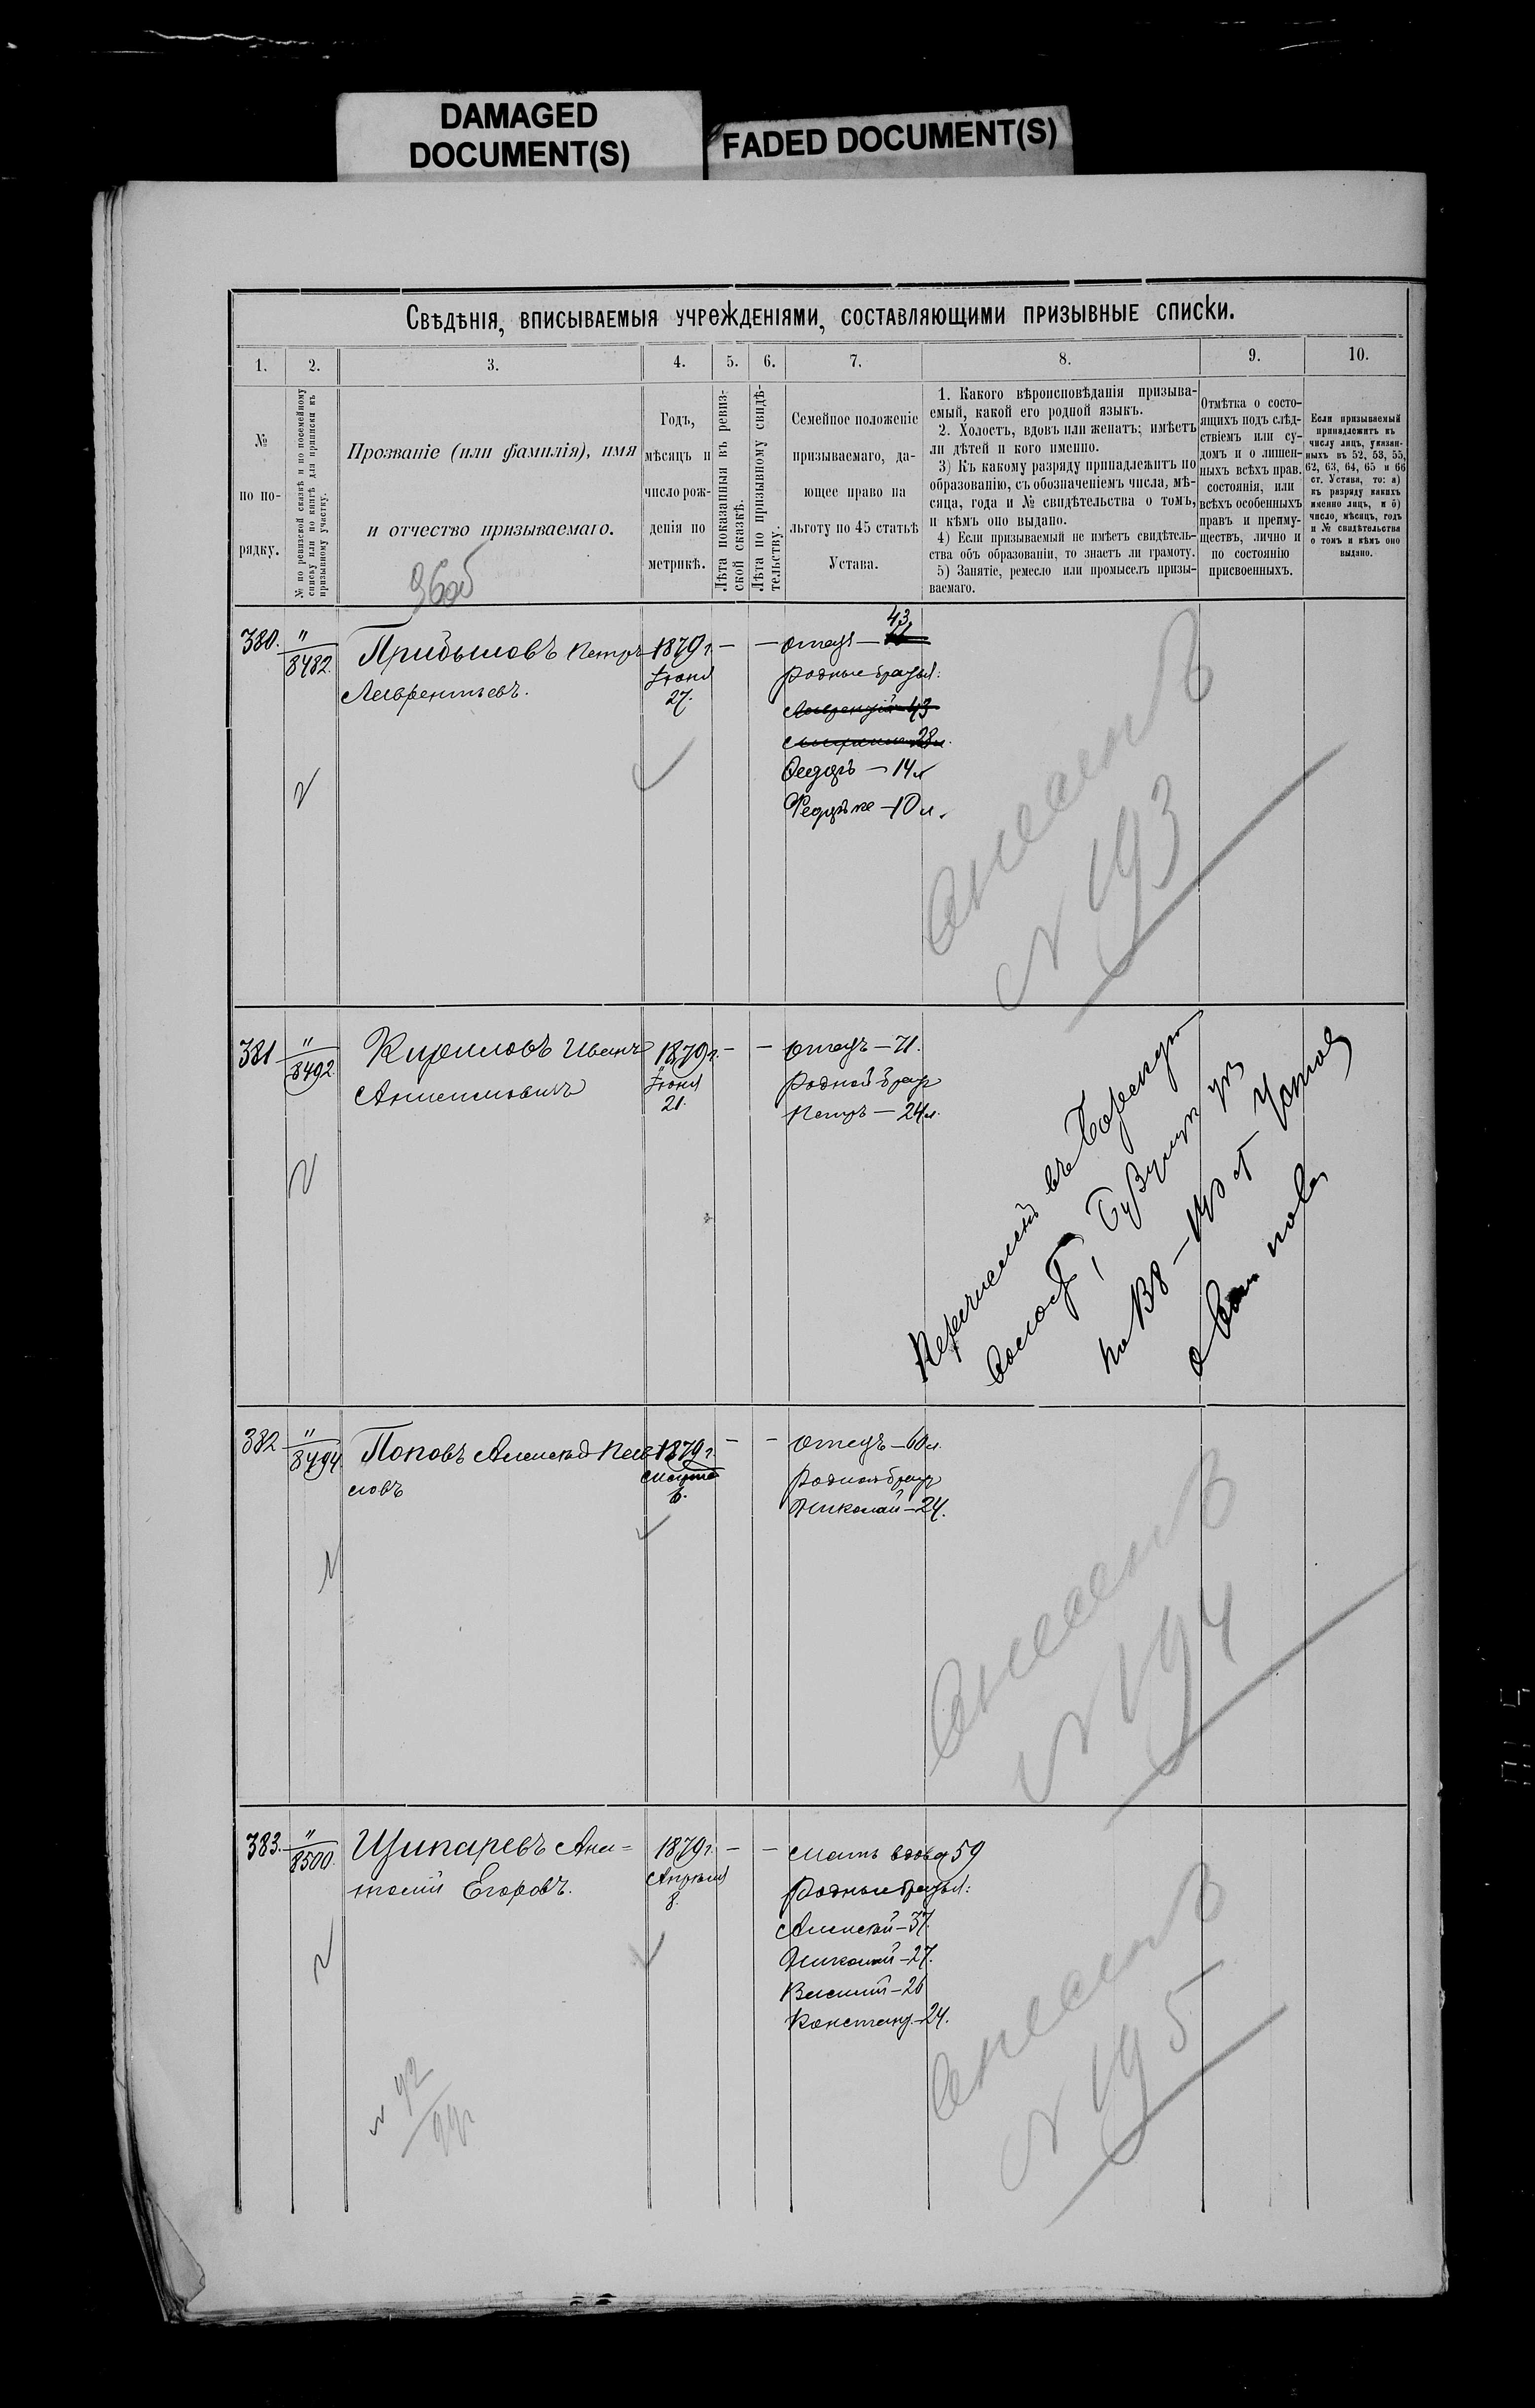 DAMAGED
DOCUMENT(S)
FADED DOCUMENT(S)
Свѣдѣнія, вписываемыя учрежденіями, составляющими призывные списки.
1. 2. 3. 4. 5. 6. 7. 8. 9. 10.
№
по по-
рядку.
№ по ревизской сказкѣ и по посемейному
списку или по книгѣ для приписки къ
призывному участку.
Прозваніе (или фамилія), имя
и отчество призываемаго.
Годъ,
мѣсяцъ и
число рож-
денія по
метрикѣ.
Лѣта показанныя въ ревиз-
ской сказкѣ.
Лѣта по призывному свидѣ-
тельству.
Семейное положеніе
призываемаго, да-
ющее право на
льготу по 45 статьѣ
Устава.
1. Какого вѣроисповѣданія призыва-
емый, какой его родной языкъ.
2. Холостъ, вдовъ или женатъ; имѣетъ
ли дѣтей и кого именно.
3) Къ какому разряду принадлежитъ по
образованію, съ обозначеніемъ числа, мѣ-
сяца, года и № свидѣтельства о томъ,
и кѣмъ оно выдано.
4) Если призываемый не имѣетъ свидѣтель-
ства объ образованіи, то знаетъ ли грамоту.
5) Занятіе, ремесло или промыселъ призы-
ваемаго.
Отмѣтка о состо-
ящихъ подъ слѣд-
ствіемъ или су-
домъ и о лишен-
ныхъ всѣхъ прав.
состоянія, или
всѣхъ особенныхъ
правъ и преиму-
ществъ, лично и
по состоянію
присвоенныхъ.
Если призываемый
принадлежитъ къ
числу лицъ, указан-
ныхъ въ 52, 53, 55,
62, 63, 64, 65 и 66
ст. Устава, то: а)
къ разряду какихъ
именно лицъ, и б)
число, мѣсяцъ, годъ
и № свидѣтельства
о томъ и кѣмъ оно
выдано.
380. " 8482. Прибыловъ Петръ 1879 г. — — отецъ — 43
Лаврентьевъ. Іюня
27.
родные братья:
Федоръ — 14 л
10 л.
внесенъ
№ 193
381 " 8492 Кириловъ Иванъ 1879 г. — — отецъ — 71.
Іюня
21.
родной братъ
Петръ — 24 л.
Перечисленъ въ
волость,
на
по
382 " 8494. Поповъ Алексѣй Пав- 1879 г. — — отецъ — 60 л.
ловъ Марта
6.
родной братъ
Николай — 24.
внесенъ
№ 194
383. " 8500. Щипаревъ Ана- 1879 г. — — мать вдова 59
толій Егоровъ. Апрѣля
8.
родные братья:
Алексѣй — 37.
Николай — 27.
Василій — 26
Констант. — 24.
внесенъ
№ 195